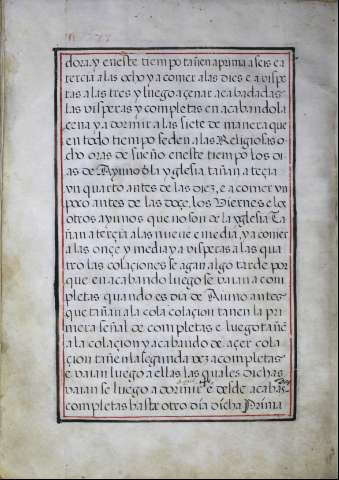 dora. y eneste tiempo tañen aprima a seis e a
tercia a las ocho y a comer a las dies e a vispe
ras a las tres y luego a çenar acabadas
las visperas y completas en acabando la
cena y a dormir a las siete de manera que
en todo tiempo se den a las Religiosas o
cho oras de sueño eneste tiempo los di
as de Ayuno dla yglesia tañan a terçia
vn quarto antes de las diez, e a comer vn
poco antes de las doçe, los Viernes e los
otros ayunos que no son de la yglesia Ta
ñan a terçia a las nueue e media, y a comer
a las onçe y media y a visperas a las qua
tro las colaçiones se agan algo tarde por
que en acabando luego se vaian a com
pletas quando es dia de Aiuno antes
que tañan a la colaçion tanen la pri
mera señal de completas e luego tañē
a la colaçion y acabando de açer cola
çion tañen la segunda vez a completas
e vaian luego a ellas las quales dichas
vaian se luego a dormir e desde acabas
completas hasta otro dia dicha Prima